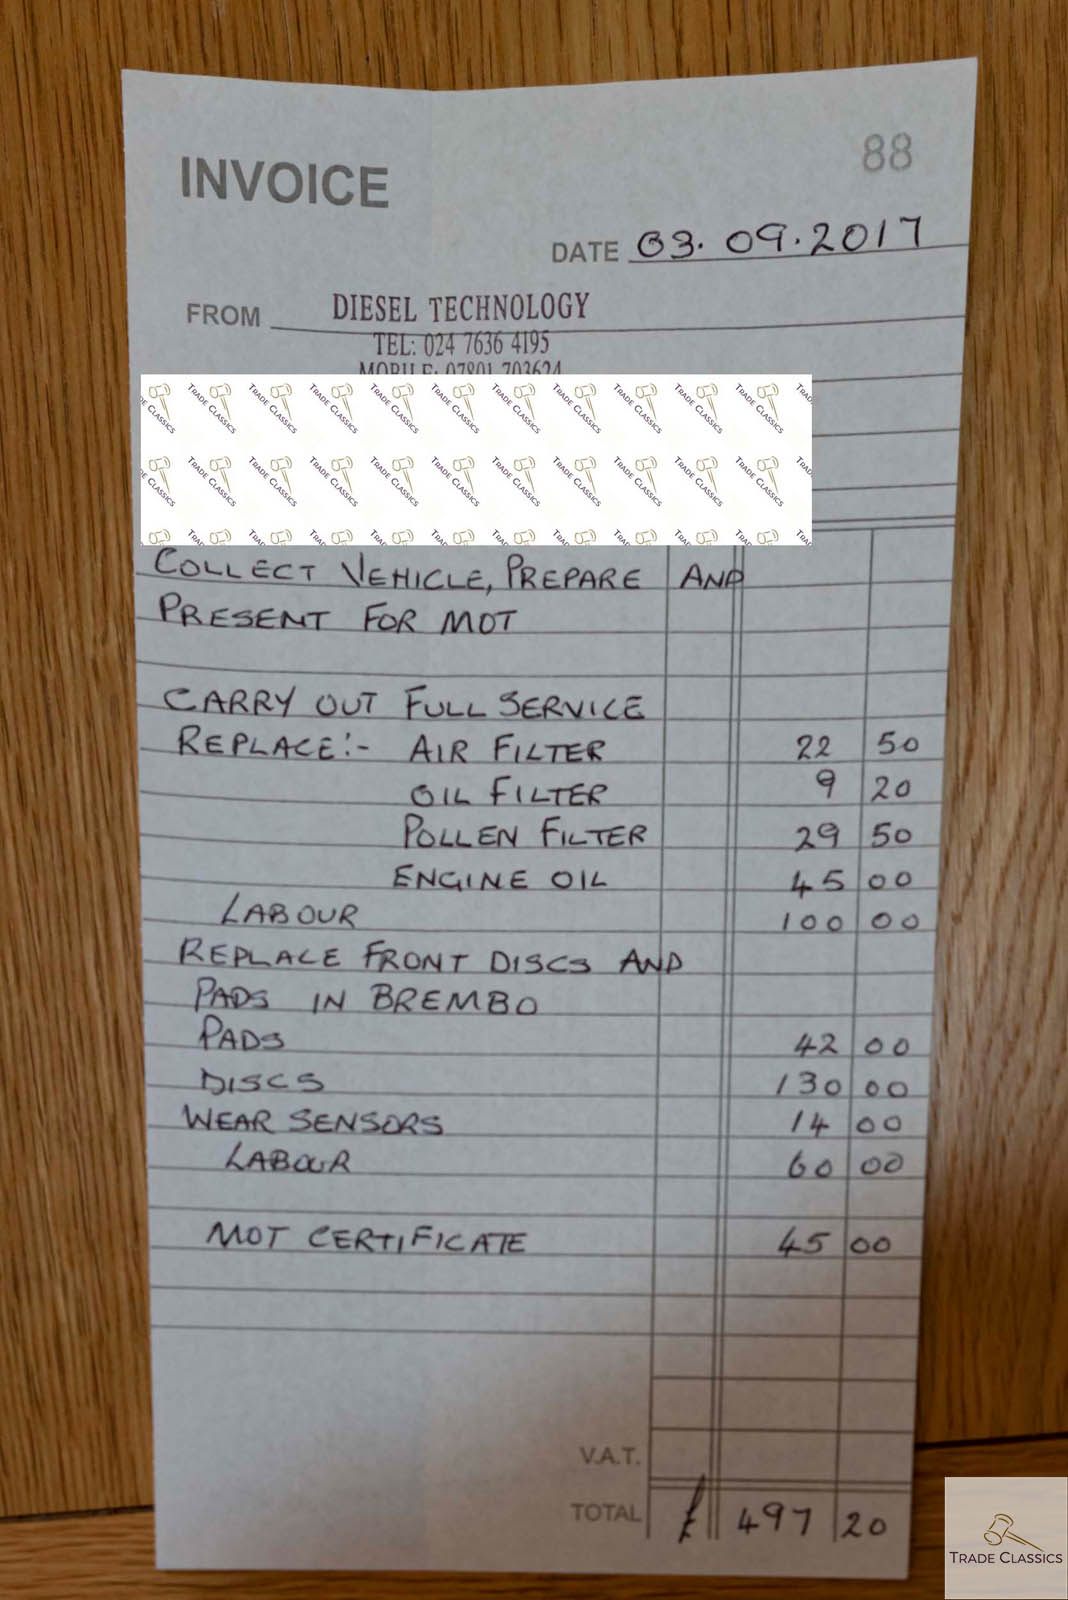 INVOICE
88
DATE 03.09.2017
FROM DIESEL TECHNOLOGY
TEL: 024 7636 4195
MOBILE: 07801 703624
COLLECT VEHICLE, PREPARE AND
PRESENT FOR MOT
CARRY OUT FULL SERVICE
REPLACE:- AIR FILTER 22 50
OIL FILTER 9 20
POLLEN FILTER 29 50
ENGINE OIL 45 00
LABOUR 100 00
REPLACE FRONT DISCS AND
PADS IN BREMBO
PADS 42 00
DISCS 130 00
WEAR SENSORS 14 00
LABOUR 60 00
MOT CERTIFICATE 45 00
V.A.T.
TOTAL £ 497 20
TRADE CLASSICS